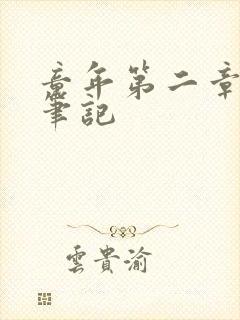 童年第二章
筆記
雲貴渝